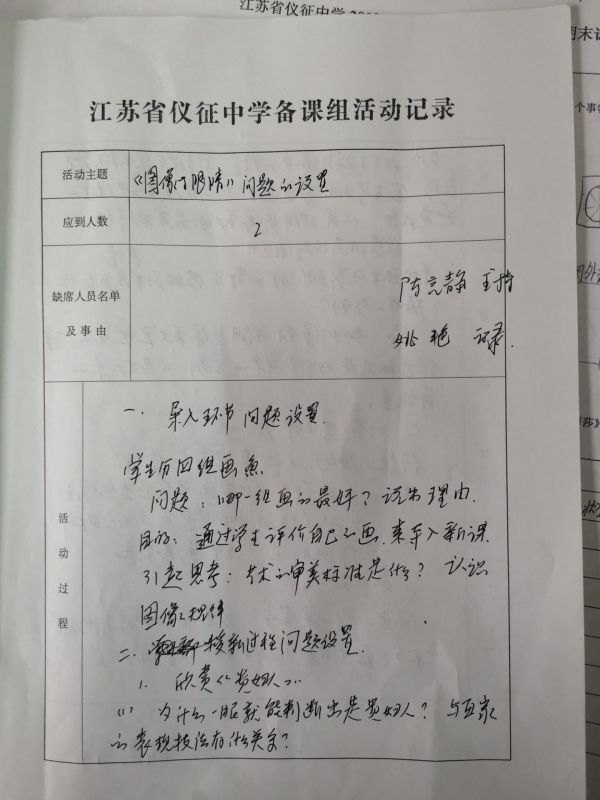 江苏省仪征中学
江苏省仪征中学备课组活动记录
活动主题
《图像与眼睛》问题的设置
应到人数
2
缺席人员名单
及事由
静 主持
姚艳 记录.
活动过程
一. 导入环节问题设置.
学生分四组画鱼
问题：哪一组画的最好？说出理由.
目的：通过学生评价自己的画.来导入新课
引起思考：艺术的审美标准是什么？认识
图像规律
二. 授新过程问题设置.
1. 欣赏《贵妇人》.
(1) 为什么一眼就能判断出是贵妇人？与画家
的表现技法有什么关系？
期末
个事